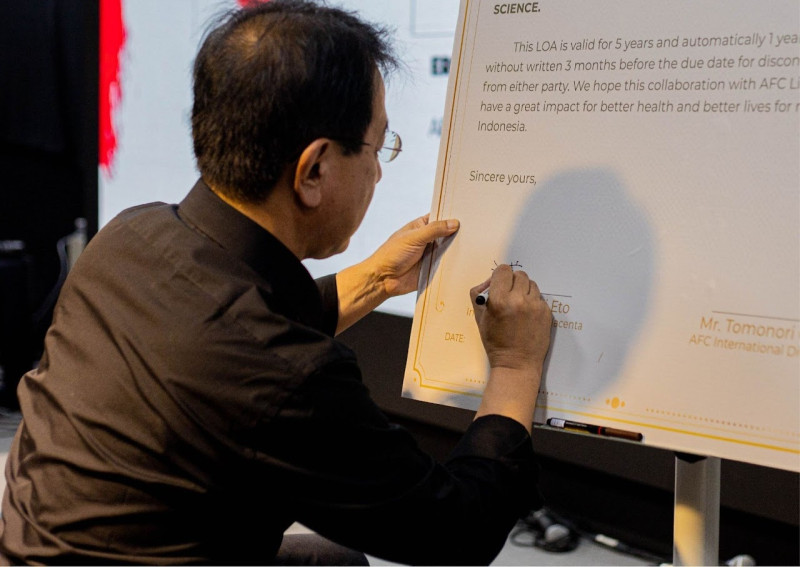 SCIENCE.
This LOA is valid for 5 years and automatically 1 yea
without written 3 months before the due date for discon
from either party. We hope this collaboration with AFC Li
have a great impact for better health and better lives for
Indonesia.
Sincere yours,
Eto
Mr. Tomonori
acenta
AFC International Di
DATE: